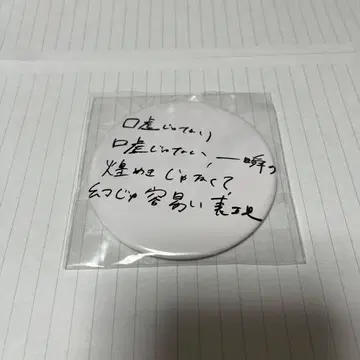 口虚じゃない
口虚じゃない、一瞬の
煌めきじゃなくて
幻じゃ容易い表現